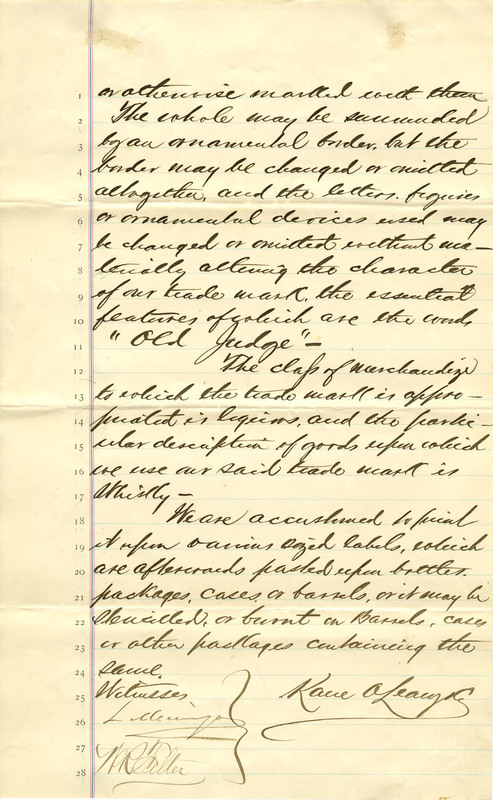 1 or otherwise marked with them
2 The whole may be surrounded
3 by an ornamental border, but the
4 border may be changed or omitted
5 altogether, and the letters. figures
6 or ornamental devices used may
7 be changed or omitted without ma-
8 terially altering the character
9 of our trade mark, the essential
10 features of which are the words
11 "Old Judge"-
12 The class of merchandize
13 to which the trade mark is appro-
14 priated is liquors, and the partic-
15 ular description of goods upon which
16 we use our said trade mark is
17 Whisky-
18 We are accustomed to print
19 it upon various sized labels, which
20 are afterwards pasted upon bottles.
21 packages, cases, or barrels, or it may be
22 stencilled, or burnt on barrels, cases
23 or other packages containing the
24 same.
25 Witnesses Kane O'Leary & Co
26
27
28